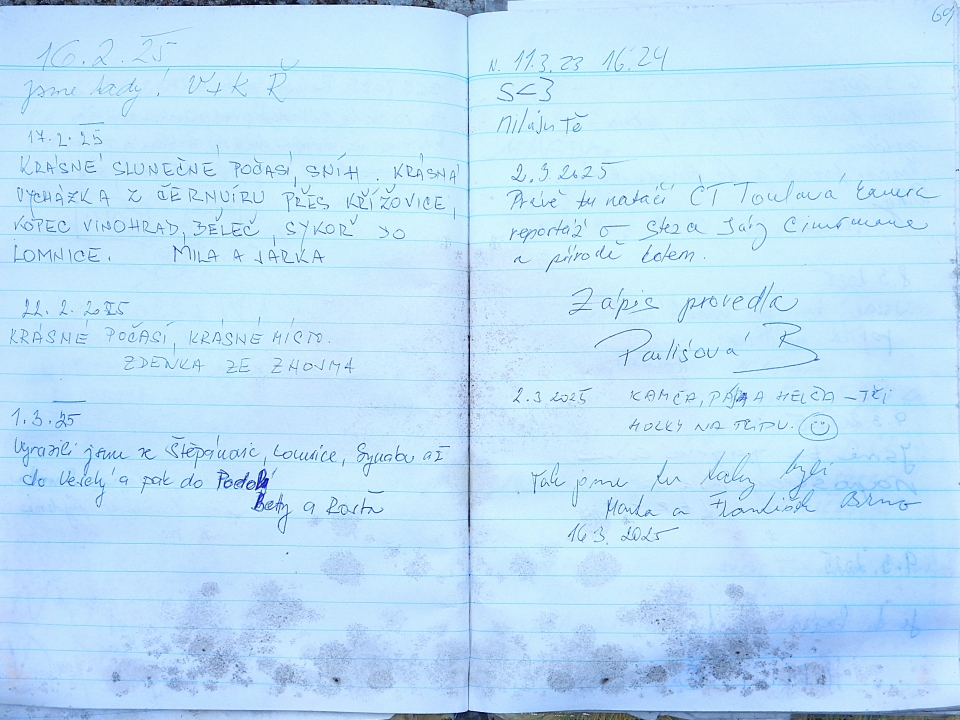 16.2.25
jsme tady! V+K Ř
17.2.25
KRÁSNÉ SLUNEČNÉ POČASÍ, SNÍH. KRÁSNÁ
VYCHÁZKA Z ČERNVÍRU PŘES KŘÍŽOVICE,
KOPEC VINOHRAD, BĚLEČ, SÝKOŘ DO
LOMNICE. MILA A JARKA
22.2.2025
KRÁSNÉ POČASÍ, KRÁSNÉ MÍSTO.
ZDENKA ZE ZNOJMA
1.3.25
Vyrazili jsme ze Štěpánovic, Lomnice, Synalov až
do Veselý a pak do Podolí
Bety a Rosťa
69
N. 11.3.23 16:24
S<3
Miluju Tě
2.3.2025
Právě tu natáčí ČT Toulavá kamera
reportáž o Steza Járy Cimrmana
a přírodě kolem.
Zápis provedla
Pavlišová B
2.3.2025 KAMČA, PÁJA A HELČA – TŘI
HOLKY NA TRIPU. ☺
Tak jsme tu taky byli
a František Brno
16.3.2025